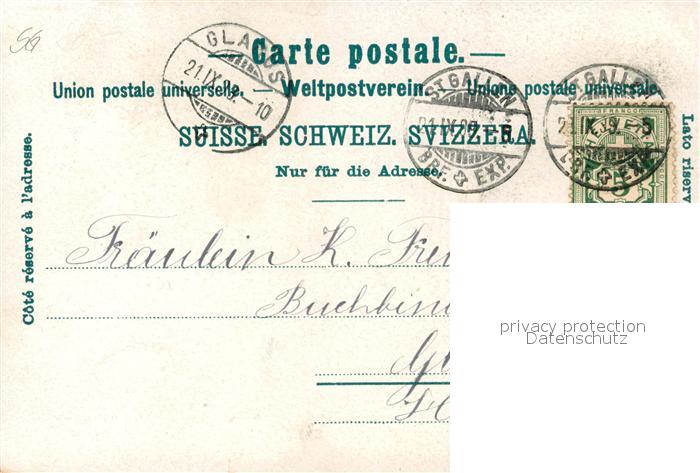 SG
Carte postale.
Union postale universelle. — Weltpostverein. — Unione postale universale.
SUISSE. SCHWEIZ. SVIZZERA.
Nur für die Adresse.
Côté réservé à l'adresse.
Lato riserv
GLARUS
21.IX.98.-10
ST. GALLEN
21.IX.98.
BRF. EXP.
ST. GALLEN
BRF. EXP.
FRANCO
5
Fräulein K.
Buchbin
privacy protection
Datenschutz